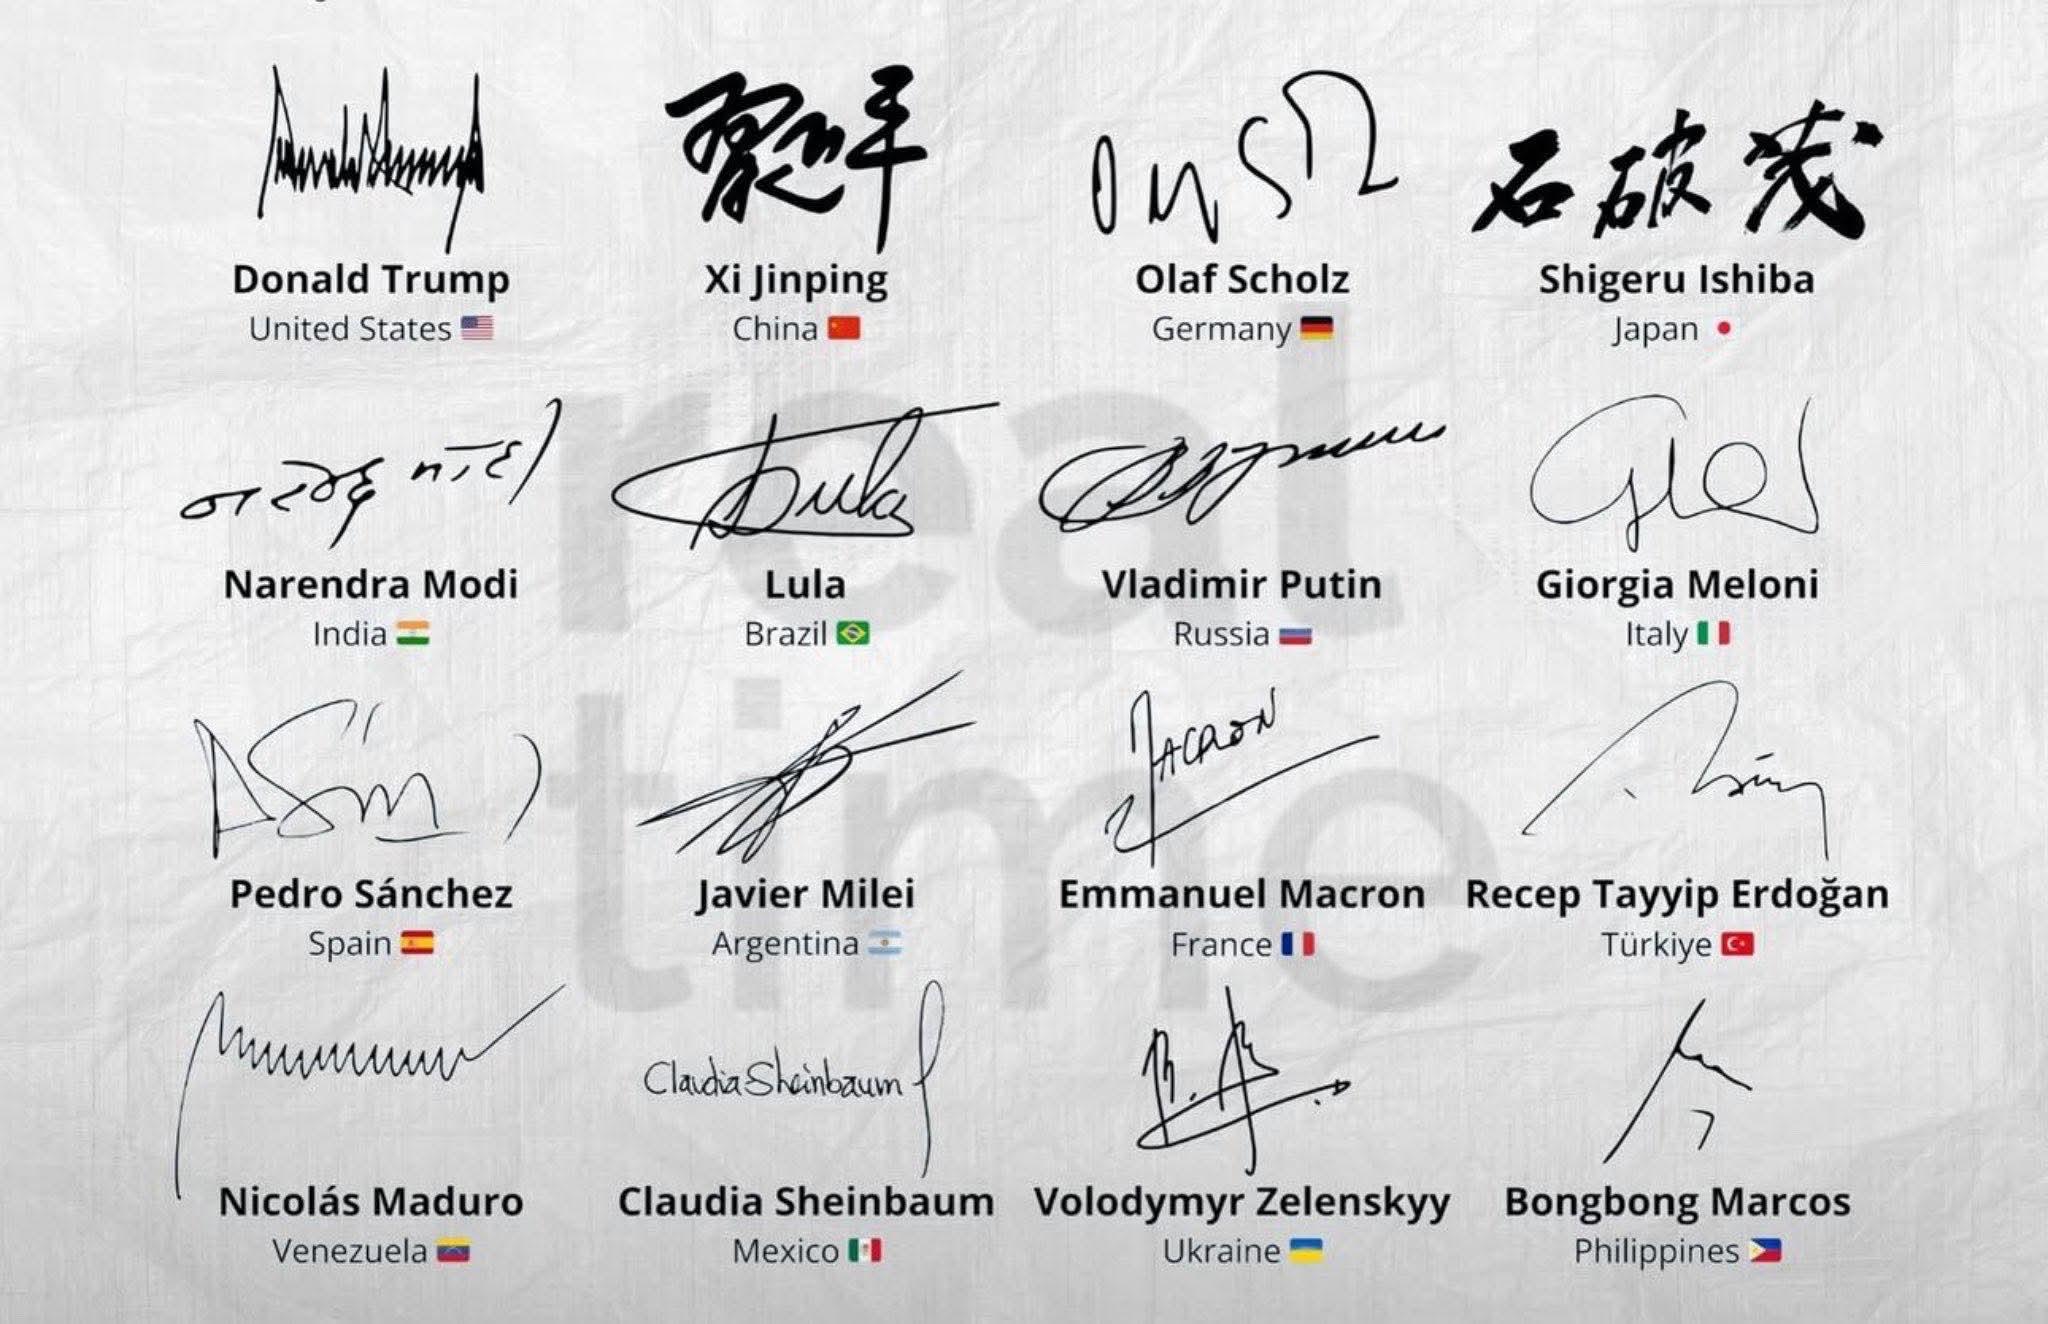 石破茂
Donald Trump Xi Jinping Olaf Scholz Shigeru Ishiba
United States China Germany Japan
नरेन्द्र मोदी Lula
Narendra Modi Lula Vladimir Putin Giorgia Meloni
India Brazil Russia Italy
MACRON
Pedro Sánchez Javier Milei Emmanuel Macron Recep Tayyip Erdoğan
Spain Argentina France Türkiye
Claudia Sheinbaum
Nicolás Maduro Claudia Sheinbaum Volodymyr Zelenskyy Bongbong Marcos
Venezuela Mexico Ukraine Philippines
real
time